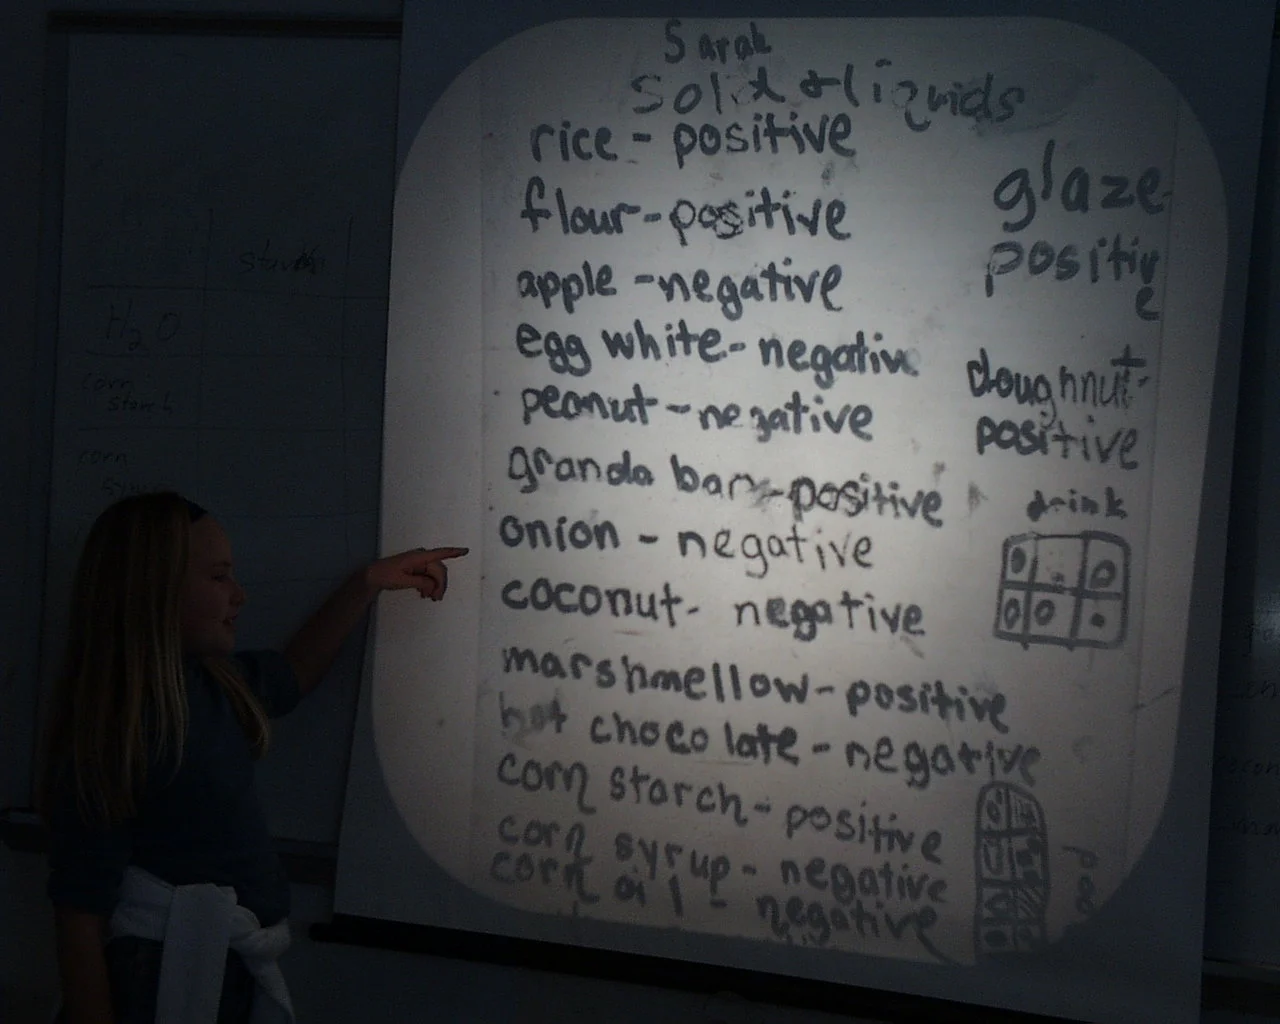 Sarah
Solid & liquids
rice - positive
flour - positive
apple - negative
egg white - negative
peanut - negative
granola bar - positive
onion - negative
coconut - negative
marshmellow - positive
hot chocolate - negative
corn starch - positive
corn syrup - negative
corn oil - negative
glaze -
positiv
e
doughnut -
positive
drink
starch
H2O
corn
starch
corn
syrup